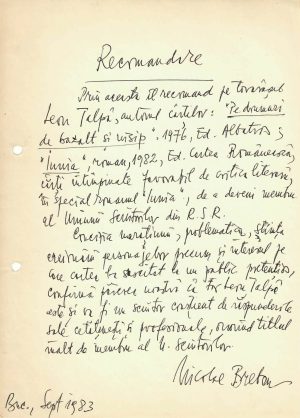 Recomandare
Prin aceasta îl recomand pe tovarășul
Leon Talpă, autorul cărților: "Pe drumuri
de bazalt și nisip", 1976, Ed. Albatros și
"Iunia", roman, 1982, Ed. Cartea Românească,
cărți întîmpinate favorabil de critica literară,
în special romanul "Iunia", de a deveni membru
al Uniunii Scriitorilor din R.S.R.
Concizia narațiunii, problematica, știința
creionării personajelor precum și interesul pe
care cartea l-a suscitat la un public pretențios,
confirmă părerea noastră că tov. Leon Talpă
este și va fi un scriitor conștient de răspunderile
sale cetățenești și profesionale, onorînd titlul
înalt de membru al U. Scriitorilor
Nicolae Breban
Buc., Sept 1983